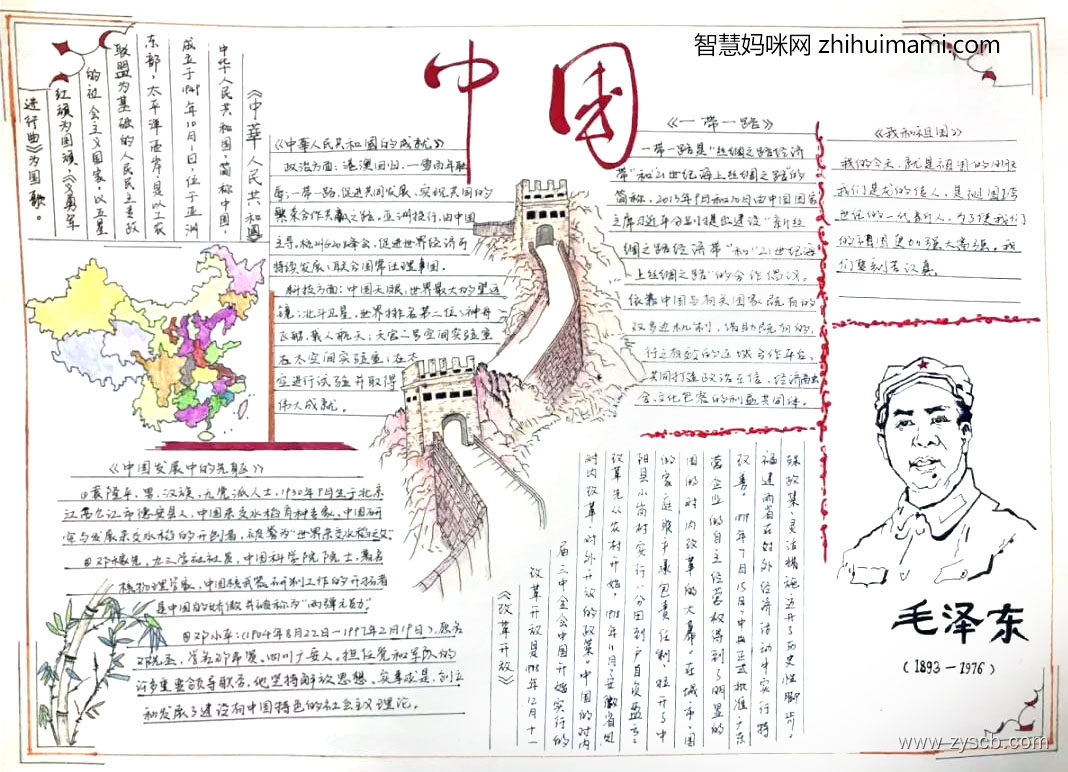 智慧妈咪网 zhihuimami.com
中国
《中華人民共和國》
中华人民共和国,简称中国,
成立于1949年10月1日,位于亚洲
东部,太平洋西岸,是以工农
联盟为基础的人民民主专政
的社会主义国家,以五星
红旗为国旗,《义勇军
进行曲》为国歌。
《中華人民共和國的成就》
政治方面:港澳回归,一雪百年耻
辱;一带一路,促进共同发展、实现共同的
繁荣合作共赢之路,亚洲投行,由中国
主导,杭州G20峰会,促进世界经济可
持续发展;联合国常任理事国。
科技方面:中国天眼:世界最大的望远
镜;北斗卫星,世界排名第二位;神舟
飞船,载人航天;天宫二号空间实验室
在太空间实验室;在太
空进行试验并取得
伟大成就。
《一带一路》
一带一路是"丝绸之路经济
带"和21世纪海上丝绸之路的
简称,2013年9月和10月由中国国家
主席习近平分别提出建设"新丝
绸之路经济带"和"21世纪海
上丝绸之路"的合作倡议。
依靠中国与有关国家既有的
双多边机制,借助既有的、
行之有效的区域合作平台,
共同打造政治互信、经济融
合、文化包容的利益共同体。
《我和祖国》
我的今天,就是祖国的明
我们是龙的传人,是祖国跨
世纪的一代新人,为了使我们
的祖国更加强大富强,我
们要刻苦认真
《中国发展中的先驱》
①袁隆平,男,汉族,无党派人士,1930年9月生于北京
江西九江市德安县人,中国杂交水稻育种专家,中国研
究与发展杂交水稻的开创者,被誉为"世界杂交水稻之父"
②邓稼先,九三学社社员,中国科学院院士,著名
核物理学家,中国核武器研制工作的开拓者
是中国的骄傲并被称为"两弹元勋"
③邓小平:(1904年8月22日-1997年2月19日),原名
邓先圣,学名邓希贤,四川广安人,担任党和军队的
许多重要领导职务,他坚持解放思想、实事求是,创立
和发展了建设有中国特色的社会主义理论。
《改革开放》
改革开放是1978年12月十一
届三中全会中国开始实行的
对内改革,对外开放的政策。中国的对内
改革先从农村开始,1978年11月,安徽省凤
阳县小岗村实行"分田到户自负盈亏
的家庭联产承包责任制,拉开了中
国的对内改革的大幕。在城市,国
营企业的自主经营权得到了明显的
改善。1979年7月15日,中央正式批准广东
福建两省在对外经济活动中实行特
殊政策灵活措施,迈开了历史性脚步。
毛泽东
(1893-1976)
www.zyscb.com